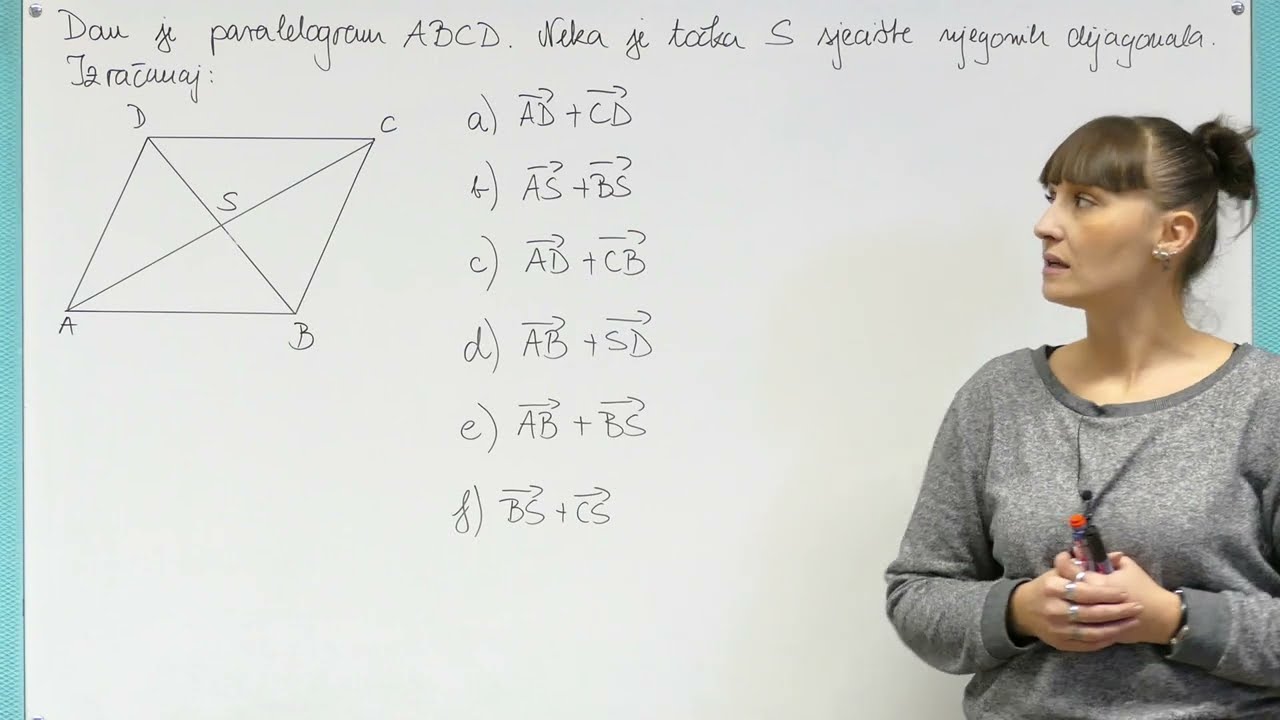 Dan je paralelogram ABCD. Neka je točka S sjecište njegovih dijagonala.
Izračunaj:
D
C
S
A
B
a) $\overrightarrow{AD} + \overrightarrow{CD}$
b) $\overrightarrow{AS} + \overrightarrow{BS}$
c) $\overrightarrow{AD} + \overrightarrow{CB}$
d) $\overrightarrow{AB} + \overrightarrow{SD}$
e) $\overrightarrow{AB} + \overrightarrow{BS}$
f) $\overrightarrow{BS} + \overrightarrow{CS}$